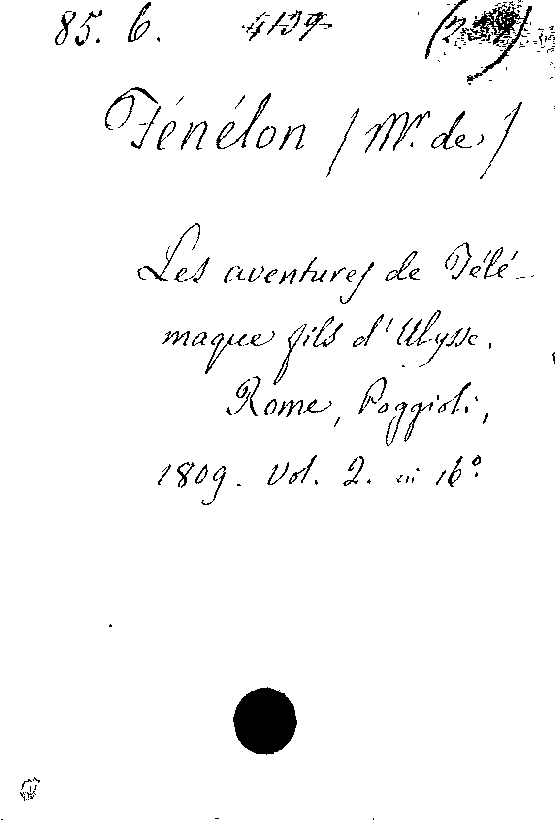 85. 6. 4139
Fénélon / Mr. de /
Les aventures de Télé-
maque fils d'Ulysse.
Rome, Poggioli,
1809. Vol. 2. in 16°.